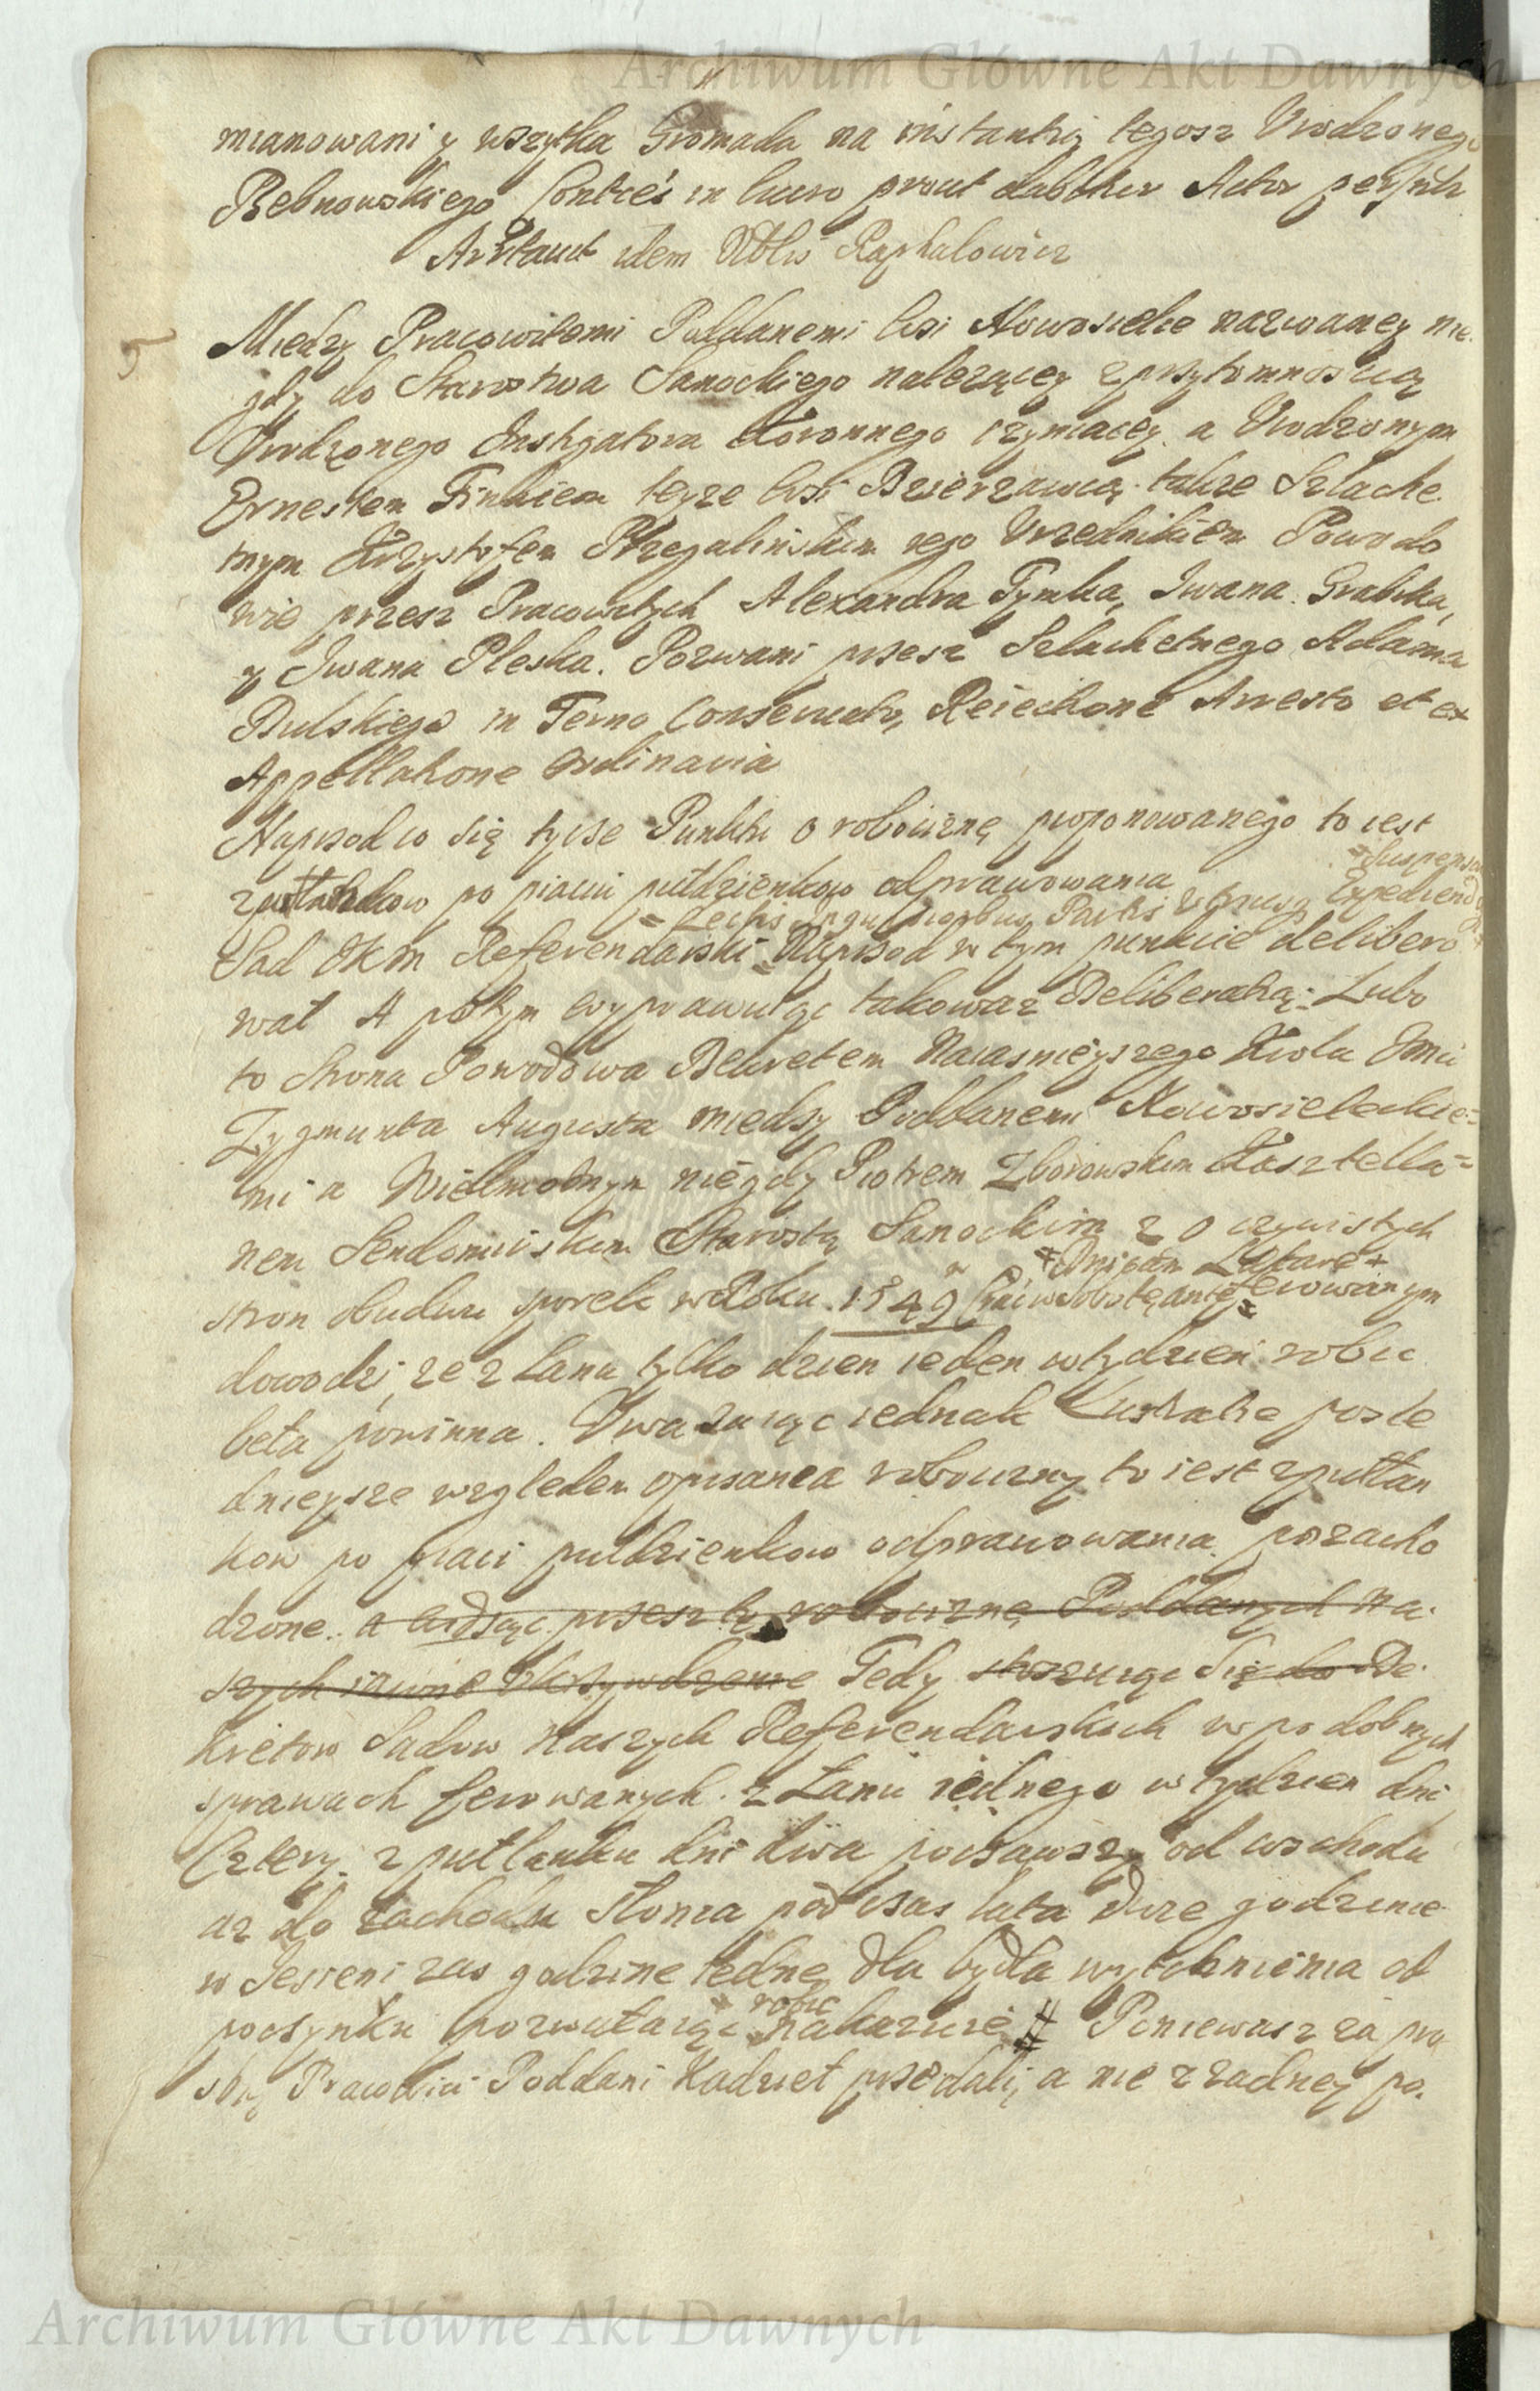 Archiwum Główne Akt Dawnych
mianowani y wszytka Gromada na instantią tegosz Urodzonego
Rebnowskiego Conties in lucro prout Actor
idem Raphalowicz
5
Między Pracowitemi Poddanemi Wsi Nowosielce nazwaney nie
gdy do Starostwa Sanockiego nalezącey z przytomnoscią
Urodzonego Instygatora Koronnego czyniącey a Urodzonym
Ernestem Finkiem teyze Wsi Dzierzawcą takze Szlache
tnym Krzysztofem Przegalinskim iego Urzednikiem Powodo
wie przesz Pracowitych Alexandra Tymka, Iwana Grabka,
y Iwana Pleska. Pozwani przesz Szlachetnego Adama
Dulskiego in Termo Conservato, Reiectione Arresto et ex
Appellatione Ordinaria
Naprzod co się tycze Punktu o robociznę proponowanego to iest
z pułłankow po piąciu pułdzienkow odprawowania
Suspensa
Partis Expediend
Sąd JKM Referendarski Naprzod w tym punkcie delibero
wał A potym wyprawuiąc takowaz Deliberatią: Lubo
to Strona Powodowa Dekretem Naiasnieyszego Krola Jmci
Zygmunta Augusta między Poddanemi Nowosieleckie=
mi a Wielmoznym niegdy Piotrem Zborowskim Kasztella=
nem Sendomirskim Starostą Sanockim z oczywistych
stron obudwu sporek w Roku 1549 ferowanym
dowodzi, ze z Łanu tylko dzien ieden w tydzien robic
beła powinna. Uwazaiąc iednak Lustratie posle
dnieysze względem opisania robocizny to iest z pułłan
kow po piąci pułdzienkow odprawowania pozacho
dzone a widząc przesz tę robociznę Poddanych na
szych Tedy stosuiąc się do De
kretow Sądow Naszych Referendarskich w podobnych
sprawach ferowanych z Łanu iednego w tydzien dni
Cztery z pułłanku dni dwa począwszy od wschodu
az do zachodu Słonca podczas lata dwie godzinie
w Jesieni zas godzine iedne dla bydła wytchnienia od
poczynku pozwalaiąc robic nakazuie # Poniewasz za pro
sbą Pracowici Poddani Kadzieł przedali, a nie z zadney po.
Archiwum Główne Akt Dawnych